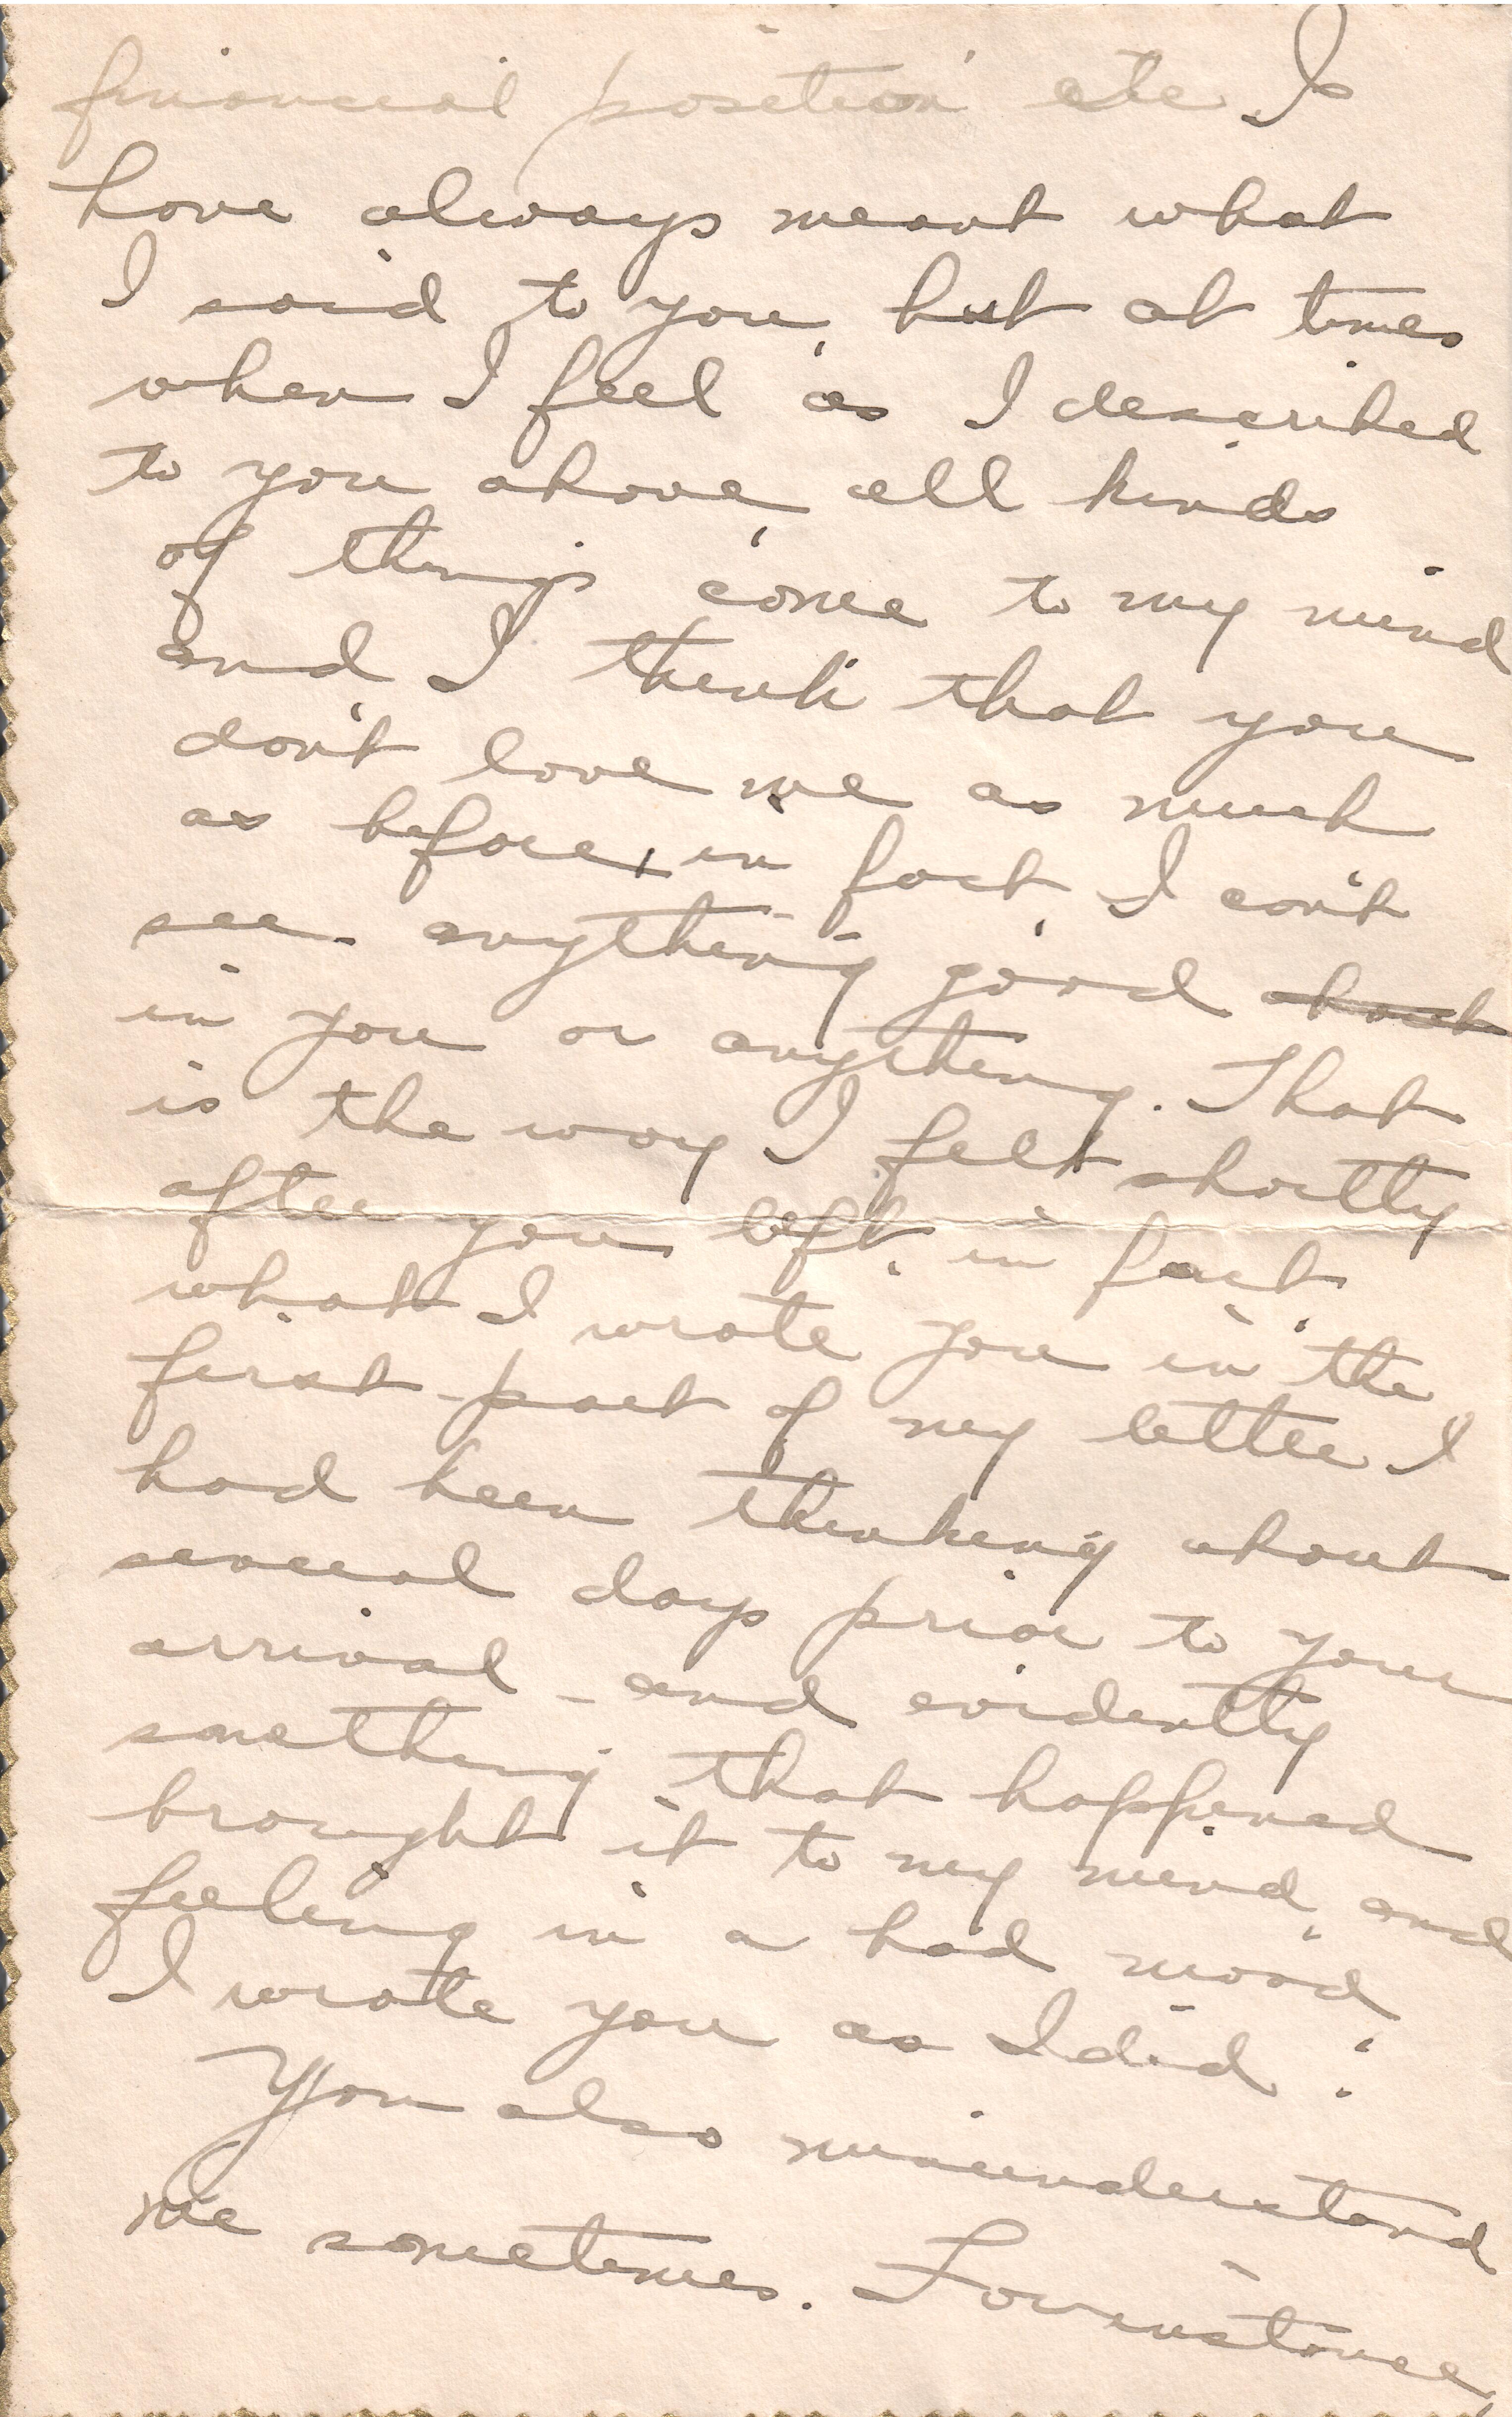 financial position etc. I
have always meant what
I said to you, but at times
when I feel as I described
to you above, all kinds
of things come to my mind
and I think that you
don't love me as much
as before, in fact, I can't
see anything good about
in you or anything. That
is the way I felt shortly
after you left, in fact,
what I wrote you in the
first part of my letter I
had been thinking about
several days prior to your
arrival - and evidently
something that happened
brought it to my mind, and
feeling in a bad mood
I wrote you as I did;
You also misunderstand
me sometimes. Forinstance,